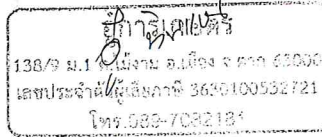 138/9 ม.1 ต.ไม้งาม อ.เมือง จ.ตาก 63000
เลขประจำตัวผู้เสียภาษี 3630100532721
โทร.089-7082181